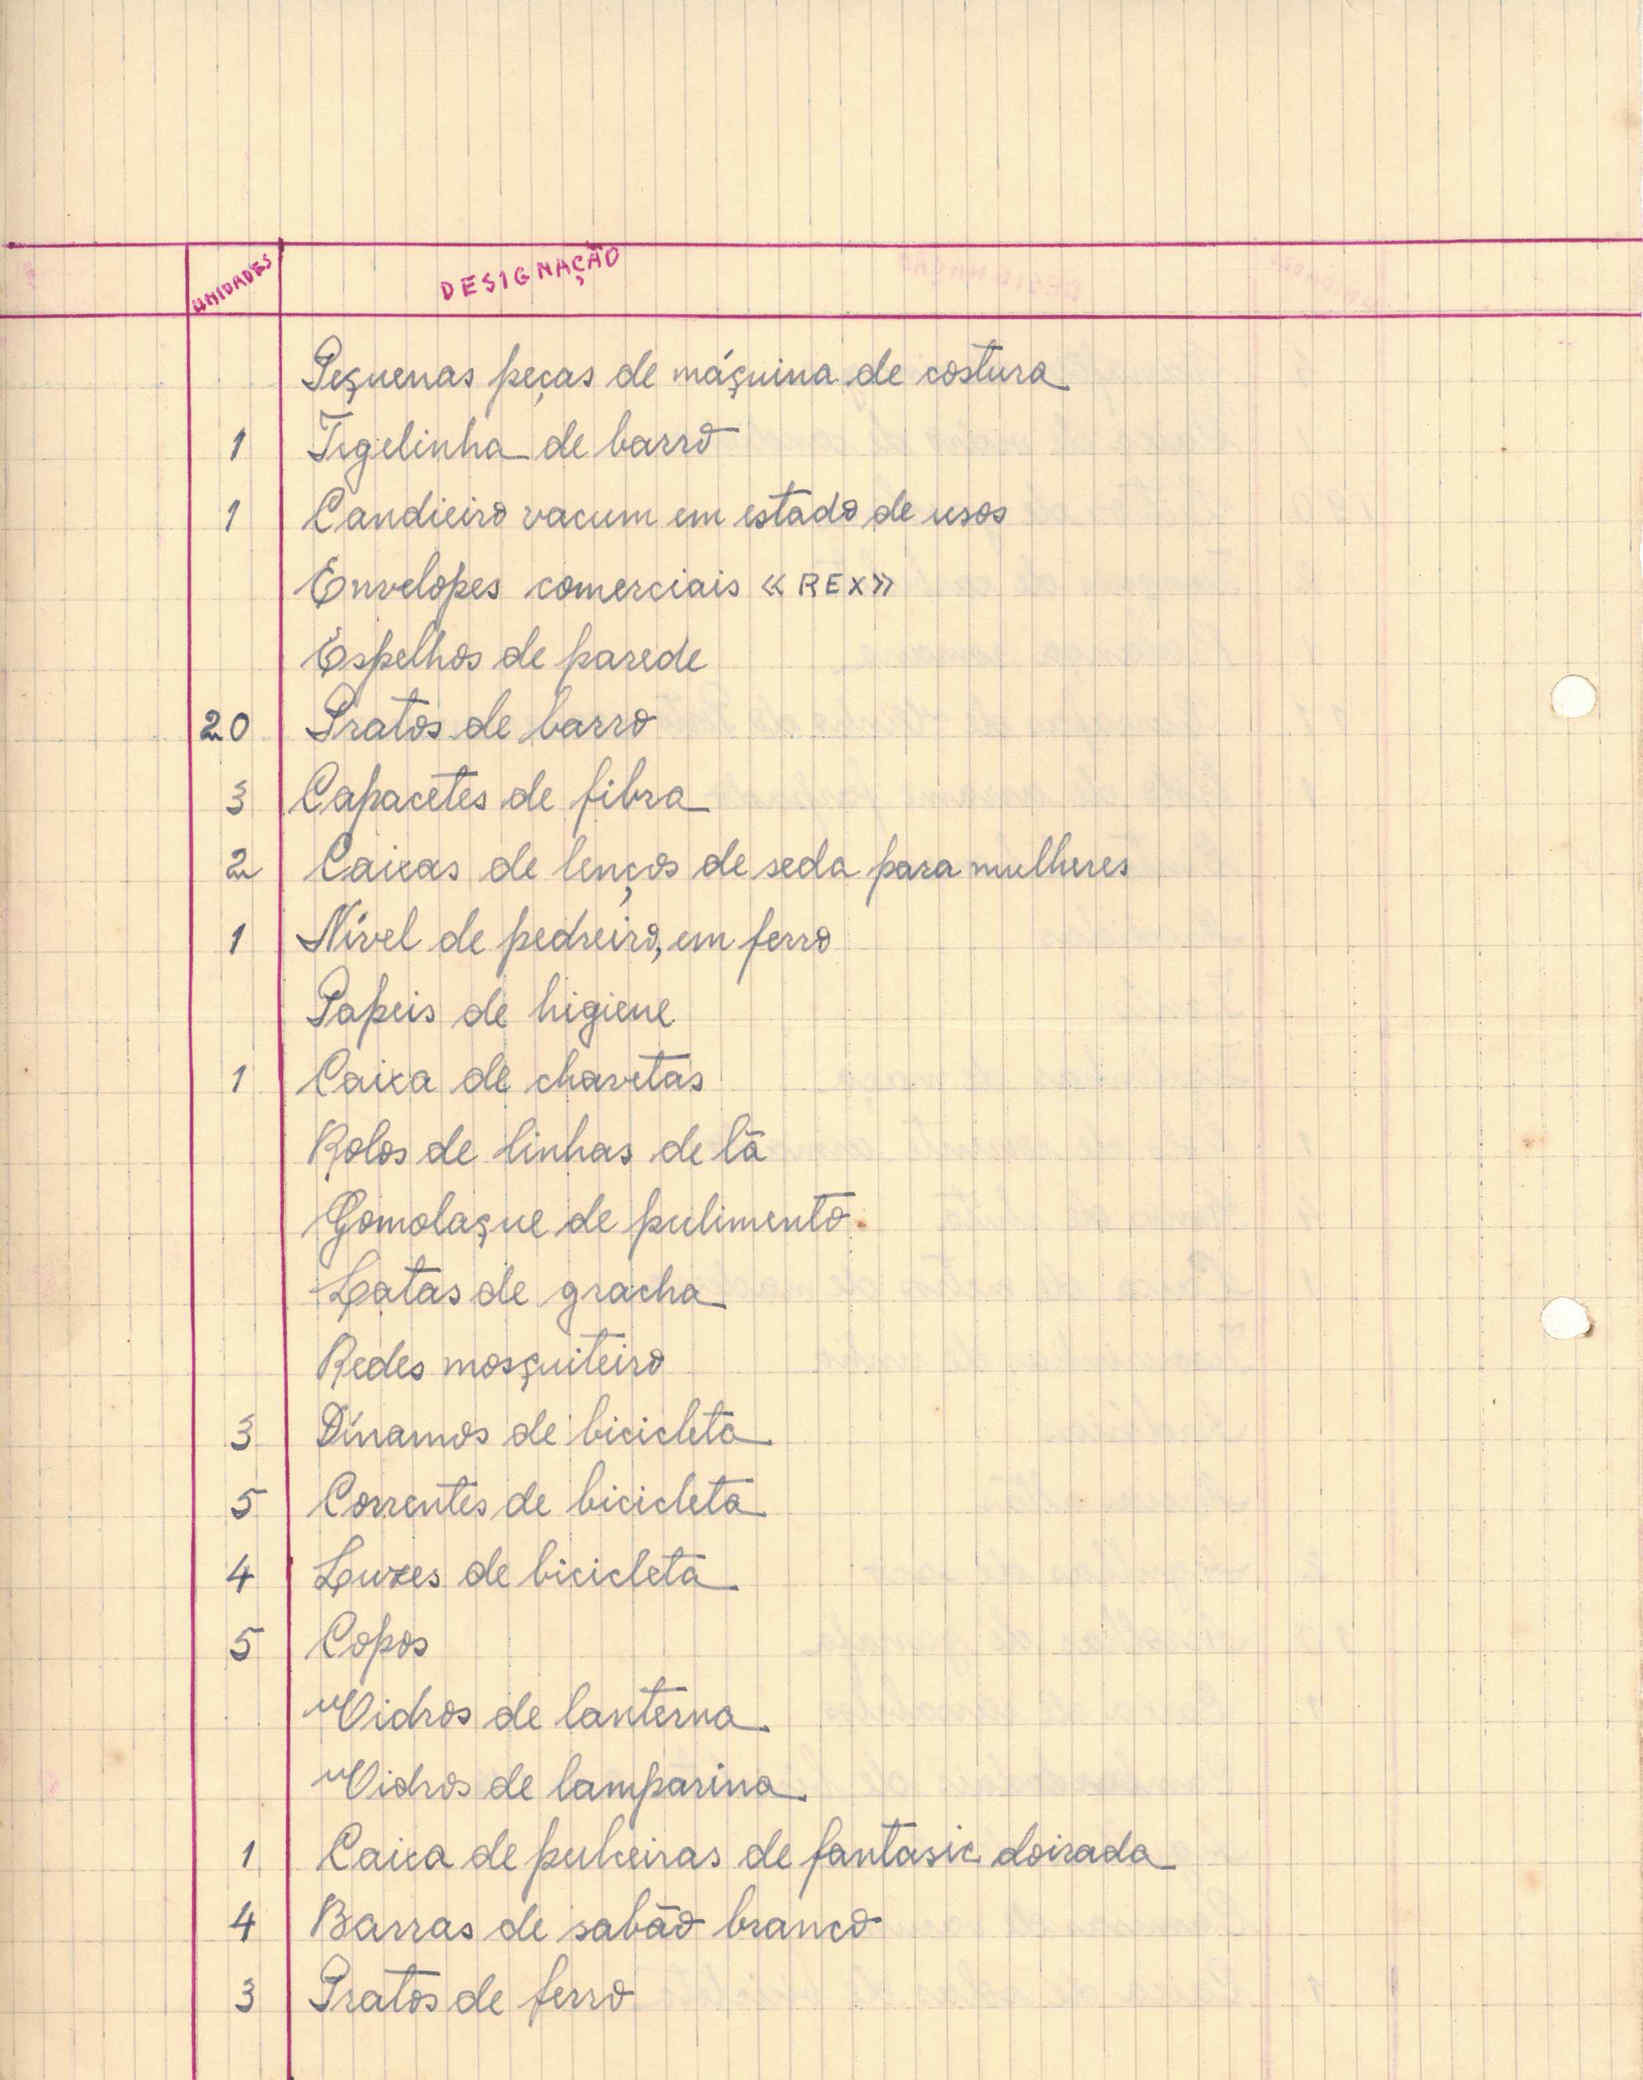 UNIDADES DESIGNAÇÃO
Pequenas peças de máquina de costura
1 Tigelinha de barro
1 Candieiro vacum em estado de usos
Envelopes comerciais «REX»
Espelhos de parede
20 Pratos de barro
3 Capacetes de fibra
2 Caixas de lenços de seda para mulheres
1 Nível de pedreiro, em ferro
Papeis de higiene
1 Caixa de chavetas
Rolos de linhas de lã
Gomolaque de pulimento
Latas de gracha
Redes mosquiteiro
3 Dínamos de bicicleta
5 Correntes de bicicleta
4 Luzes de bicicleta
5 Copos
Vidros de lanterna
Vidros de lamparina
1 Caixa de pulseiras de fantasic doirada
4 Barras de sabão branco
3 Pratos de ferro